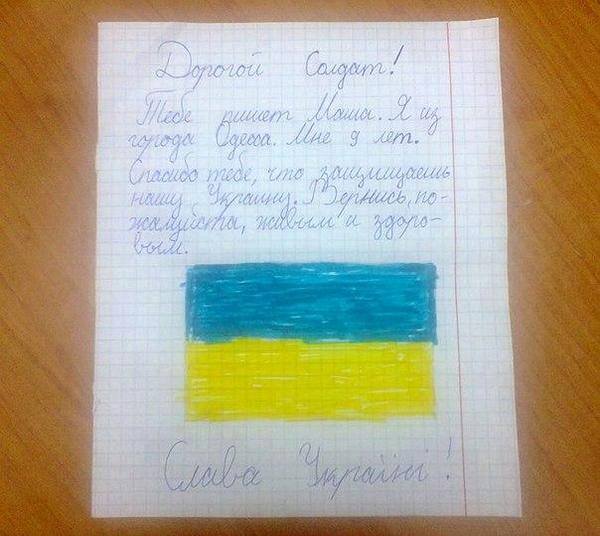 Дорогой Солдат!
Тебе пишет Маша. Я из
города Одесса. Мне 9 лет.
Спасибо тебе, что защищаешь
нашу Украину. Вернись, по-
жалуйста, живым и здоро-
вым.
Слава Україні!